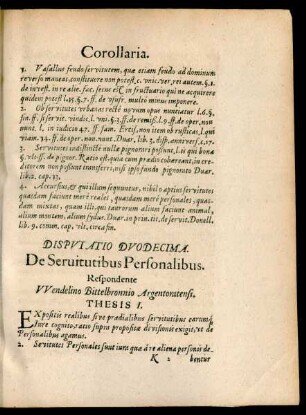 Corollaria.
1. Vasallus feudo servitutem, quæ etiam feudo ad dominum
reverso maneat constituere non potest. c. unic. ver. rei autem. §. 1.
de invest. in re alie. fac. secus est in fructuario qui ne acquirere
quidem potest l. 15. §. 7. ff. de usufr. multò minus imponere.
2. Ob servitutes urbanas rectè novum opus nuntiatur l. 6. §.
fin. ff. si servit. vindic. l. 9. ff. de oper. non
nunt. l. in iudicio 47. ff. fam. non item ob rusticas, l. qui
viam ff. de oper. non. nunt. Duar. lib. 2. disp. annivers. c. 17.
3. Servitutes indistinctè nulla pignorari possunt, l. si qui bona
ff. de pignor. Ratio est quia cum prædiis cohærant, in cre-
ditorem non possunt transferri, nisi ipso fundo pignorato Duar.
lib. 2. cap. 23.
4. Accursius, & qui illum sequuntur, nihil aptius servitutes
quasdam faciunt merè reales, quasdam merè personales, quas-
dam mixtas, quàm illi, qui taurorum alium faciunt animal,
alium montem, alium sydus Duar. in prin. tit. de servit. Donell.
lib. 9. comm. cap. ult. circa fin.
DISPUTATIO DUODECIMA.
De Servitutibus Personalibus.
Respondente
VVendelino Bittelbronnio Argentoratensi.
THESIS I.
EXpositis realibus sive prædialibus servitutibus earumq́;
jure cognito, ratio supra propositæ divisionis exigit, ut de
Personalibus agamus.
2. Servitutes Personales sunt jura quæ à re aliena personis de-
K 2 bentur